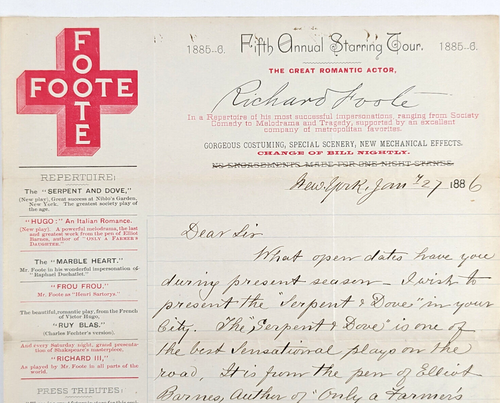 FOOTE
FOOTE
1885-6. Fifth Annual Starring Tour. 1885-6.
THE GREAT ROMANTIC ACTOR,
Richard Foote
In a Repertoire of his most successful impersonations, ranging from Society
Comedy to Melodrama and Tragedy, supported by an excellent
company of metropolitan favorites.
GORGEOUS COSTUMING, SPECIAL SCENERY, NEW MECHANICAL EFFECTS.
CHANGE OF BILL NIGHTLY.
NO ENGAGEMENTS MADE FOR ONE NIGHT STANDS.
New York, Jany 27 1886
REPERTOIRE:
The "SERPENT AND DOVE,"
(New play), Great success at Niblo's Garden,
New York. The greatest society play of
the age.
"HUGO:" An Italian Romance.
(New play). A powerful melodrama, the last
and greatest work from the pen of Elliot
Barnes, author of "ONLY A FARMER'S
DAUGHTER."
The "MARBLE HEART."
Mr. Foote in his wonderful impersonation of
"Raphael Duchatlet."
"FROU FROU."
Mr. Foote as "Henri Sartorys."
The beautiful romantic play, from the French
of Victor Hugo,
"RUY BLAS."
(Charles Fechter's version).
And every Saturday night, grand presenta-
tion of Shakespeare's masterpiece,
"RICHARD III,"
As played by Mr. Foote in all parts of the
world.
PRESS TRIBUTES:
Dear Sir
What open dates have you
during present season – I wish to
present the "Serpent & Dove" in your
City. The "Serpent & Dove" is one of
the best Sensational plays on the
road. It is from the pen of Elliot
Barnes, Author of "Only a Farmers